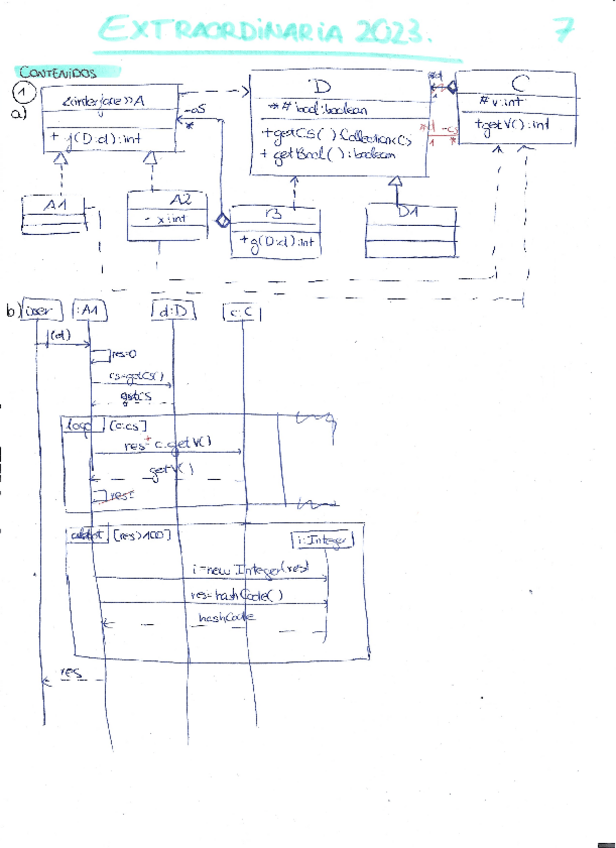 EXTRAORDINARIA 2023.
7
CONTENIDOS
1
a)
<<interface>> A
+ g(D:d):int
-as
*
D
# bool:boolean
+getCS():Collection<C>
+ getBool():boolean
C
# v:int
+getV():int
1
-cs
*
A1
A2
- x:int
+g(D:d):int
D1
b)
user
:A1
d:D
c:C
(d)
res=0
cs=getCs()
getCs
loop
[c:cs]
res+=c.getV()
getV()
res
[res>100]
i:Integer
i=new Integer(res)
res=hashCode()
hashCode
res